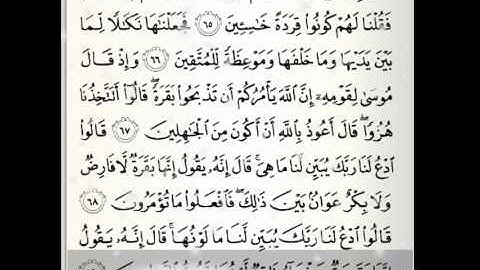 فَقُلْنَا لَهُمْ كُونُوا۟ قِرَدَةً خَـٰسِـِٔينَ ٦٥ فَجَعَلْنَـٰهَا نَكَـٰلًا لِّمَا
بَيْنَ يَدَيْهَا وَمَا خَلْفَهَا وَمَوْعِظَةً لِّلْمُتَّقِينَ ٦٦ وَإِذْ قَالَ
مُوسَىٰ لِقَوْمِهِۦٓ إِنَّ ٱللَّهَ يَأْمُرُكُمْ أَن تَذْبَحُوا۟ بَقَرَةً ۖ قَالُوٓا۟ أَتَتَّخِذُنَا
هُزُوًا ۖ قَالَ أَعُوذُ بِٱللَّهِ أَنْ أَكُونَ مِنَ ٱلْجَـٰهِلِينَ ٦٧ قَالُوا۟
ٱدْعُ لَنَا رَبَّكَ يُبَيِّن لَّنَا مَا هِىَ ۚ قَالَ إِنَّهُۥ يَقُولُ إِنَّهَا بَقَرَةٌ لَّا فَارِضٌ
وَلَا بِكْرٌ عَوَانٌۢ بَيْنَ ذَٰلِكَ ۖ فَٱفْعَلُوا۟ مَا تُؤْمَرُونَ ٦٨
قَالُوا۟ ٱدْعُ لَنَا رَبَّكَ يُبَيِّن لَّنَا مَا لَوْنُهَا ۚ قَالَ إِنَّهُۥ يَقُولُ